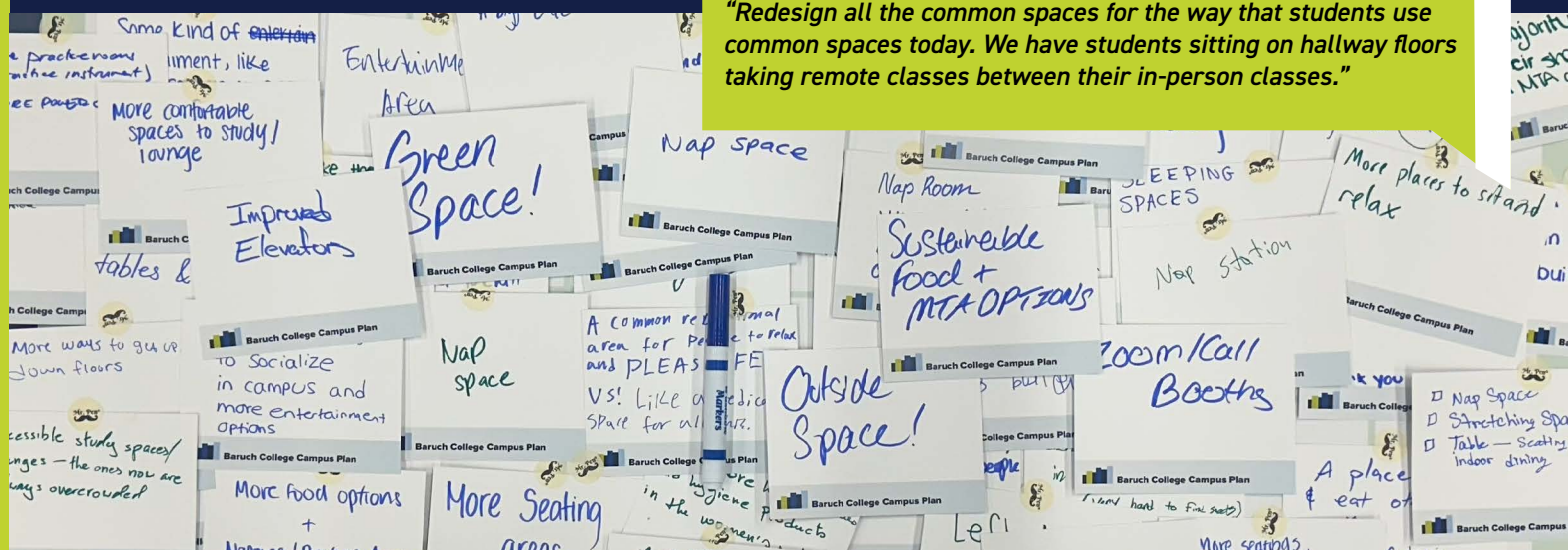 “Redesign all the common spaces for the way that students use
common spaces today. We have students sitting on hallway floors
taking remote classes between their in-person classes.”
Some kind of
iment, like
Entertainme
Area
More comfortable
spaces to study/
lounge
Green
Space!
Baruch College Campus Plan
Nap space
Baruch College Campus Plan
Baruch College Campus Plan
Baruch College Campus Plan
Nap Room
SLEEPING
SPACES
More places to sit and
relax
Baruch College Campus Plan
Improved
Elevators
Baruch College Campus Plan
tables &
Sustaineable
Food +
MTA OPTIONS
Baruch College Campus Plan
Nap station
More ways to get up
down floors
to Socialize
in campus and
more entertainment
options
Baruch College Campus Plan
Nap
space
Baruch College Campus Plan
A common
area for to relax
and PLEAS FE
VS! Like a
Space for all
Markers
Outside
Space!
Baruch College Campus Plan
Zoom/Call
Booths
Baruch College Campus Plan
Nap Space
Stretching Spa
Table — Seating
indoor dining
Baruch College Campus
cessible study spaces/
nges — the ones now are
ways overcrowded
More food options
+
More Seating
areas
hygiene products
in the women's
people
hard to find seats)
A place
& eat
More seatings